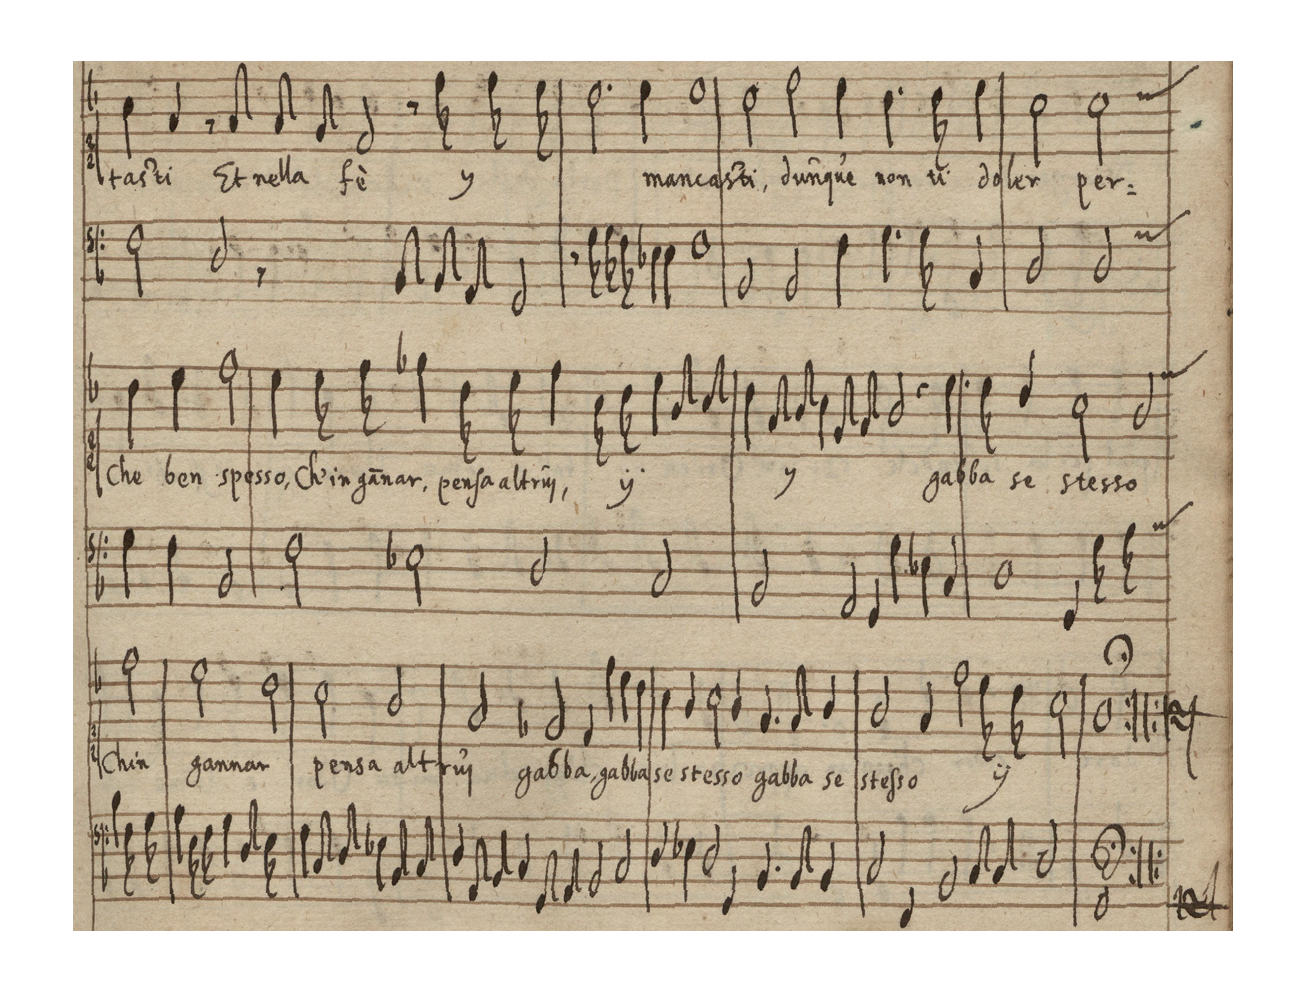 tasti Et nella fè y mancasti, dunque non ti doler per=
Che ben spesso, Ch'in gañar, pensa altrui, ÿ y gabba se stesso
Chin gannar pensa altrui gabba, gabba se stesso gabba se stesso ÿ